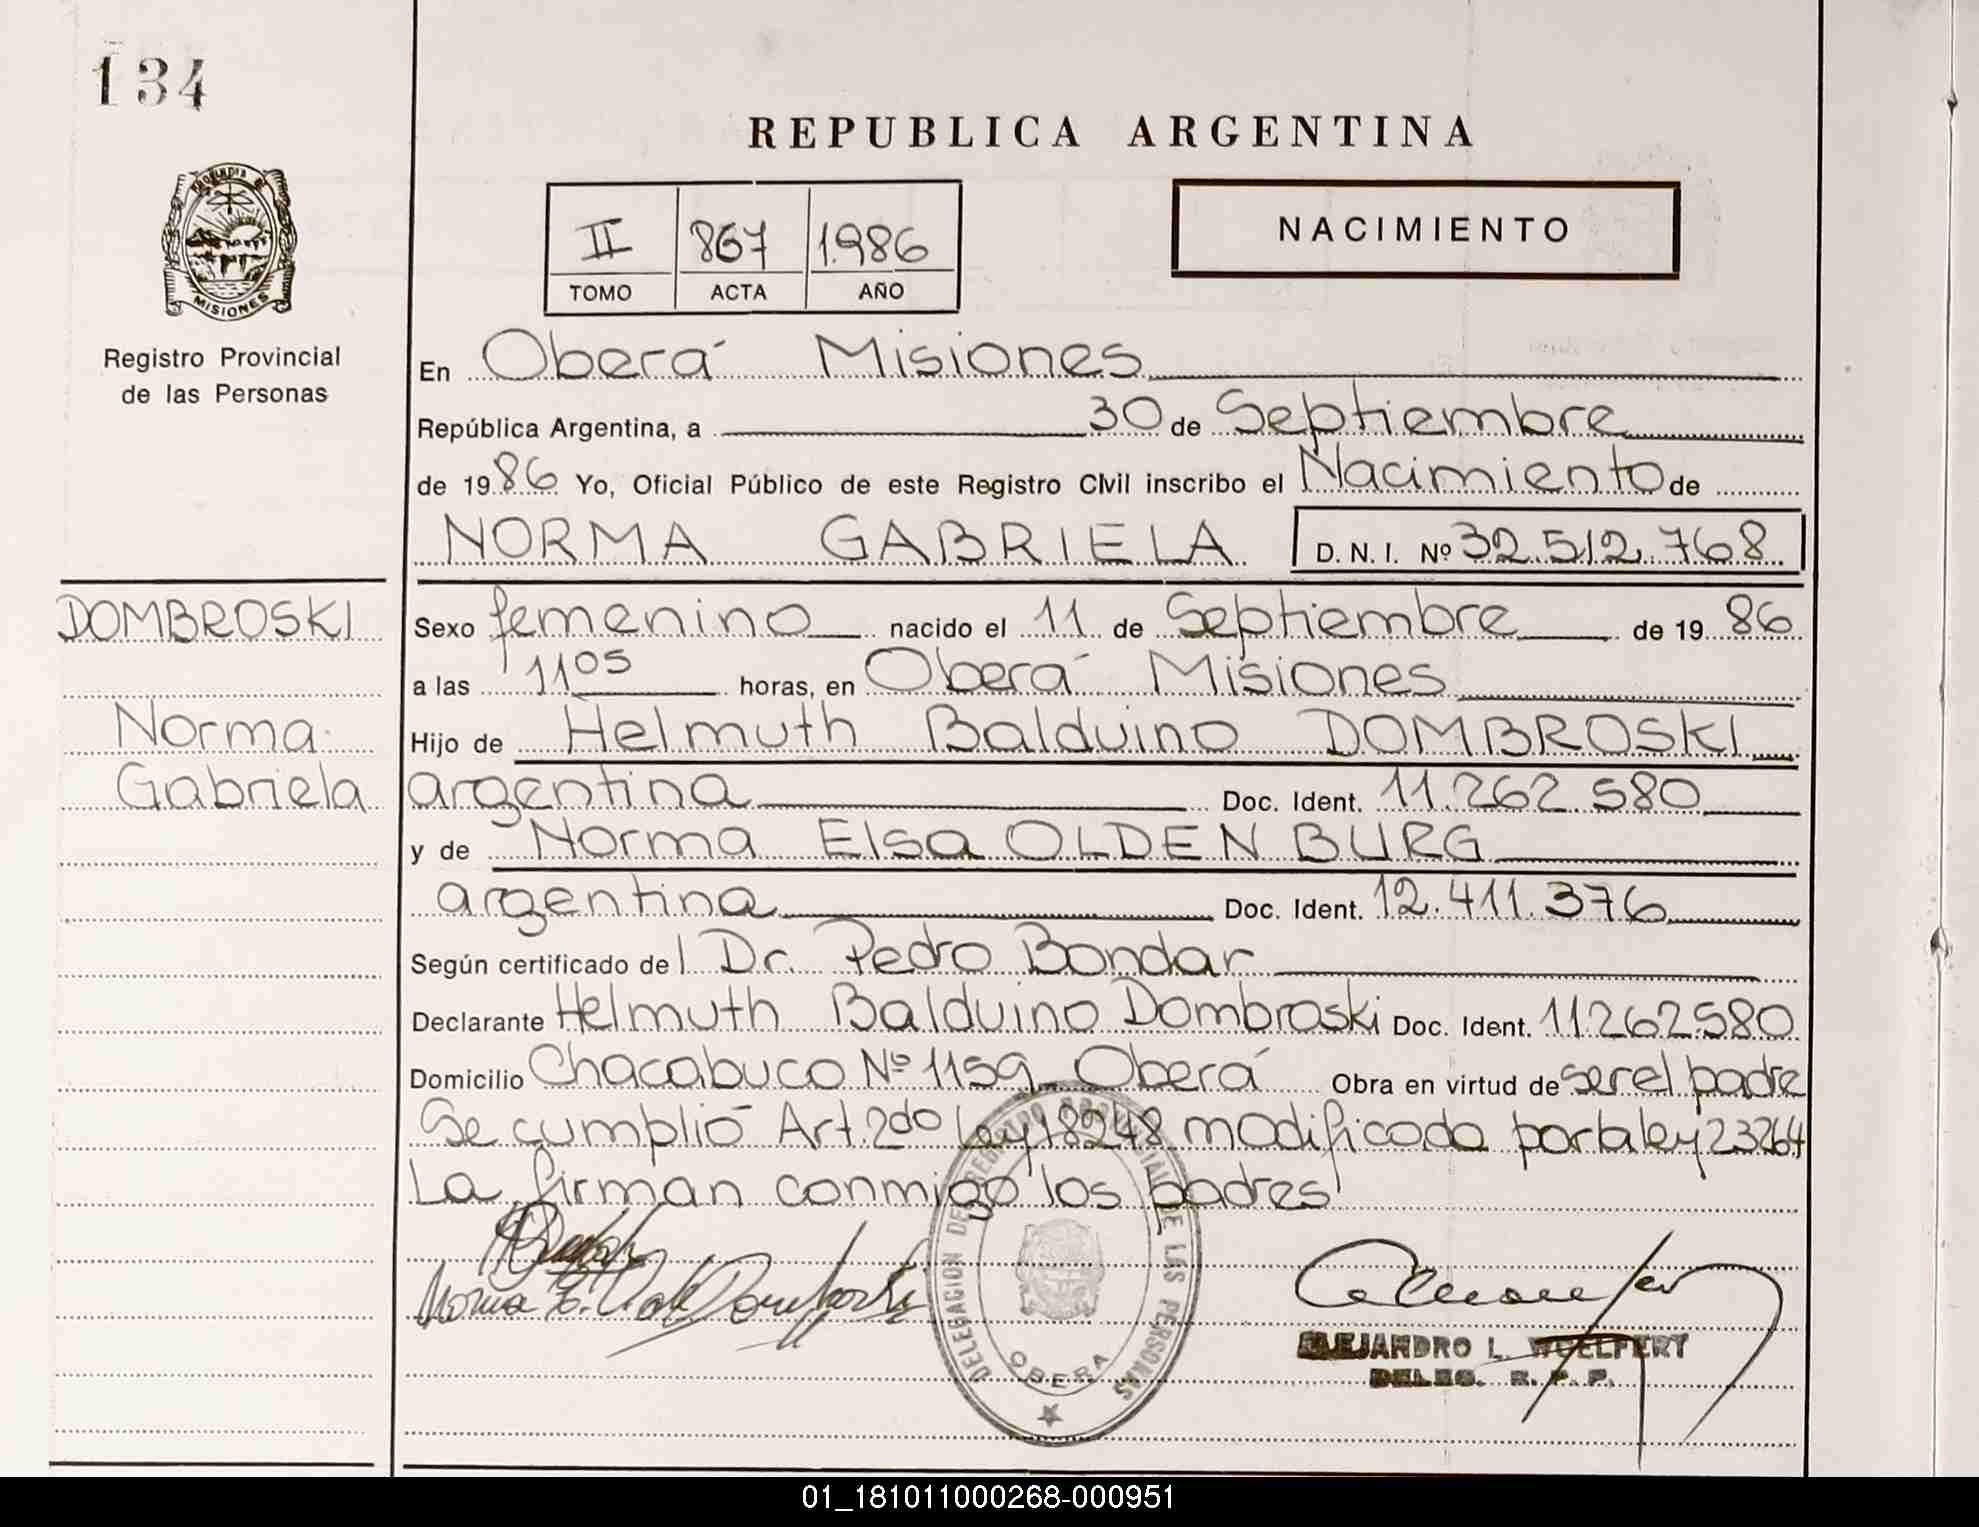 134
REPUBLICA ARGENTINA
PROVINCIA DE
MISIONES
II 867 1.986
TOMO ACTA AÑO
NACIMIENTO
Registro Provincial
de las Personas
En Oberá Misiones
República Argentina, a 30 de Septiembre
de 1986 Yo, Oficial Público de este Registro Civil inscribo el Nacimiento de
NORMA GABRIELA D. N. I. Nº 32.512.768
DOMBROSKI
Norma
Gabriela
Sexo femenino nacido el 11 de Septiembre de 1986
a las 11 05 horas, en Oberá Misiones
Hijo de Helmuth Balduino DOMBROSKI
argentina Doc. Ident. 11.262.580
y de Norma Elsa OLDENBURG
argentina Doc. Ident. 12.411.376
Según certificado del Dr. Pedro Bondar
Declarante Helmuth Balduino Dombroski Doc. Ident. 11.262.580
Domicilio Chacabuco Nº 1159 Oberá Obra en virtud de ser el padre
Se cumplió Art. 2do ley 18248 modificada por la ley 23264
La firman conmigo los padres
DELEGACION DEL REGISTRO PROVINCIAL DE LAS PERSONAS
OBERA
ALEJANDRO L. WOELFERT
DELEG. R. P. P.
01_181011000268-000951